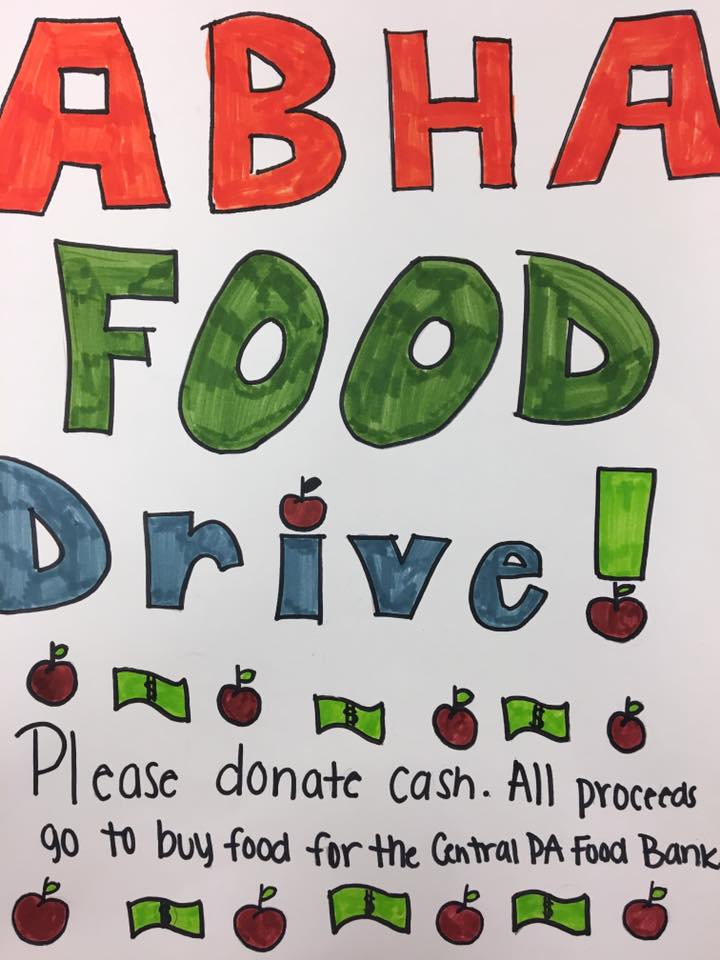 ABHA
FOOD
Drive!
Please donate cash. All proceeds
go to buy food for the Central PA Food Bank